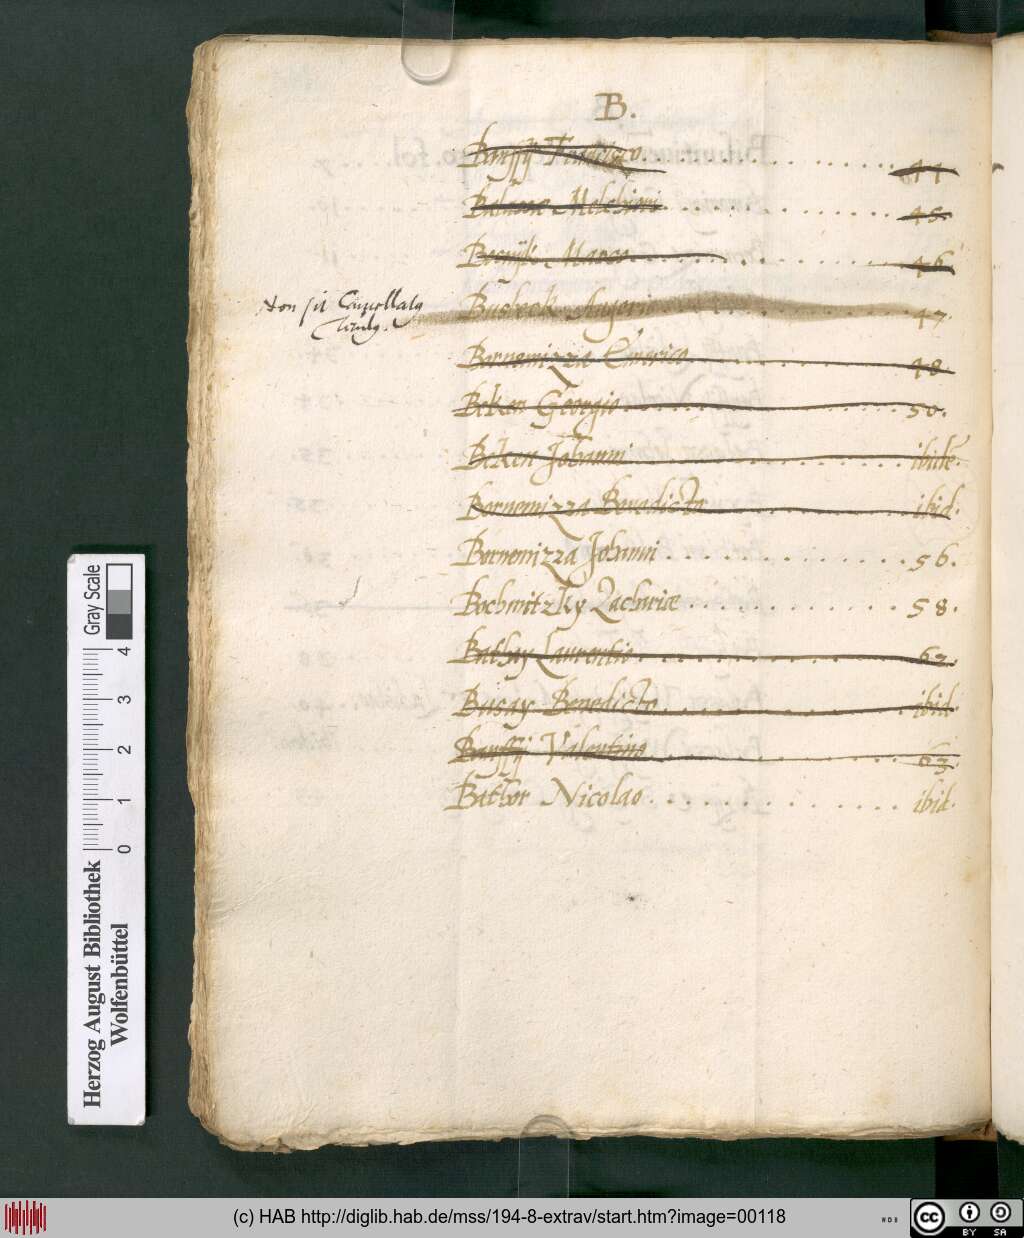 B.
Banffy Francisco. 44
Balason Melchiori. 45
Beenyk Marco. 46
Non sit Cancellatus
Busbeck Augeri. 47
Bornemizza Emerico. 48.
Beken Georgio. 50.
Beken Johanni. ibide.
Bornemizza Benedicto ibid.
Bornemizza Johanni. 56.
Bochmitzky Zachariæ. 58.
Bathay Laurentio. 62.
Busay Benedicto ibid
Banffy Valentino. 63.
Bathor Nicolao. ibid.
Gray Scale
0 1 2 3 4
Herzog August Bibliothek
Wolfenbüttel
(c) HAB http://diglib.hab.de/mss/194-8-extrav/start.htm?image=00118
WDB
cc BY SA